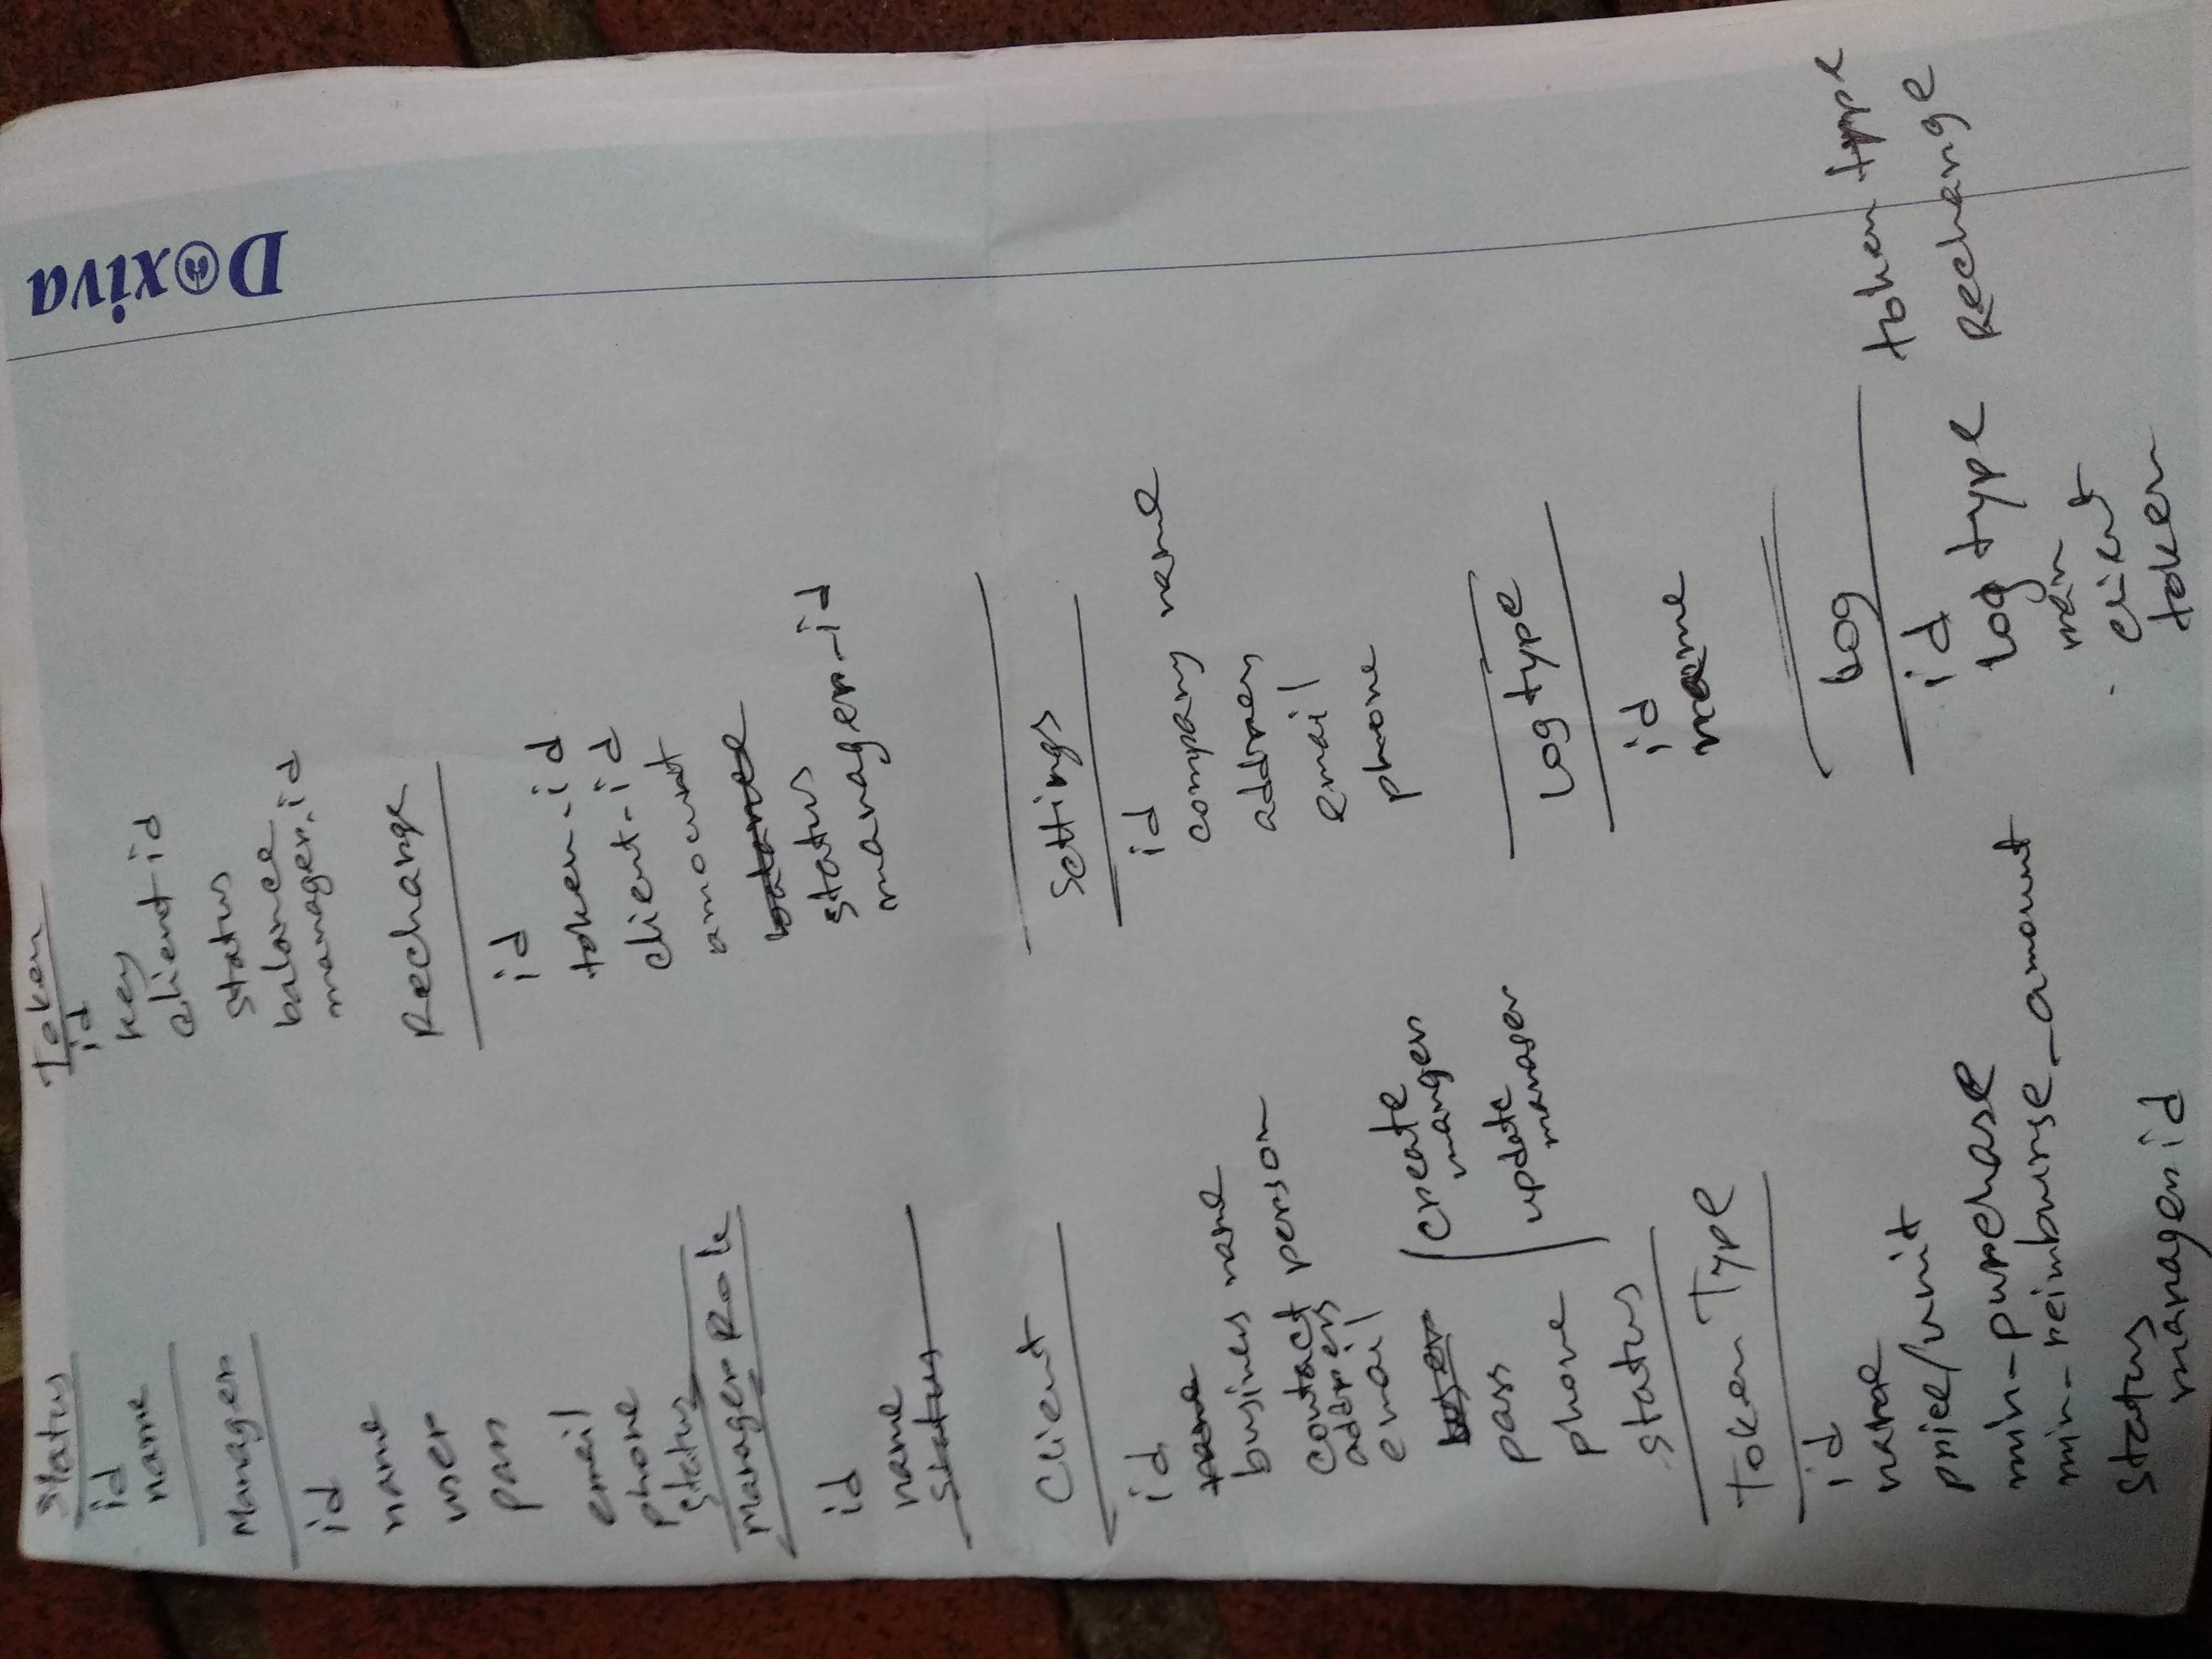 Status
id
name
Manager
id
name
user
pass
email
phone
status
Manager Role
id
name
status
Client
id
name
business name
contact person
address
email
user
pass
phone
status
create
manger
update
manager
Token Type
id
name
price/unit
min-purchase
min-reimburse_amount
status
manager id
Token
id
key
client id
status
balance
manager.id
Recharge
id
token-id
client-id
amount
balance
status
manager-id
Settings
id
company name
address
email
phone
Log type
id
name
Log
id
Log type
man
client
token
token type
Recharge
Doxiva